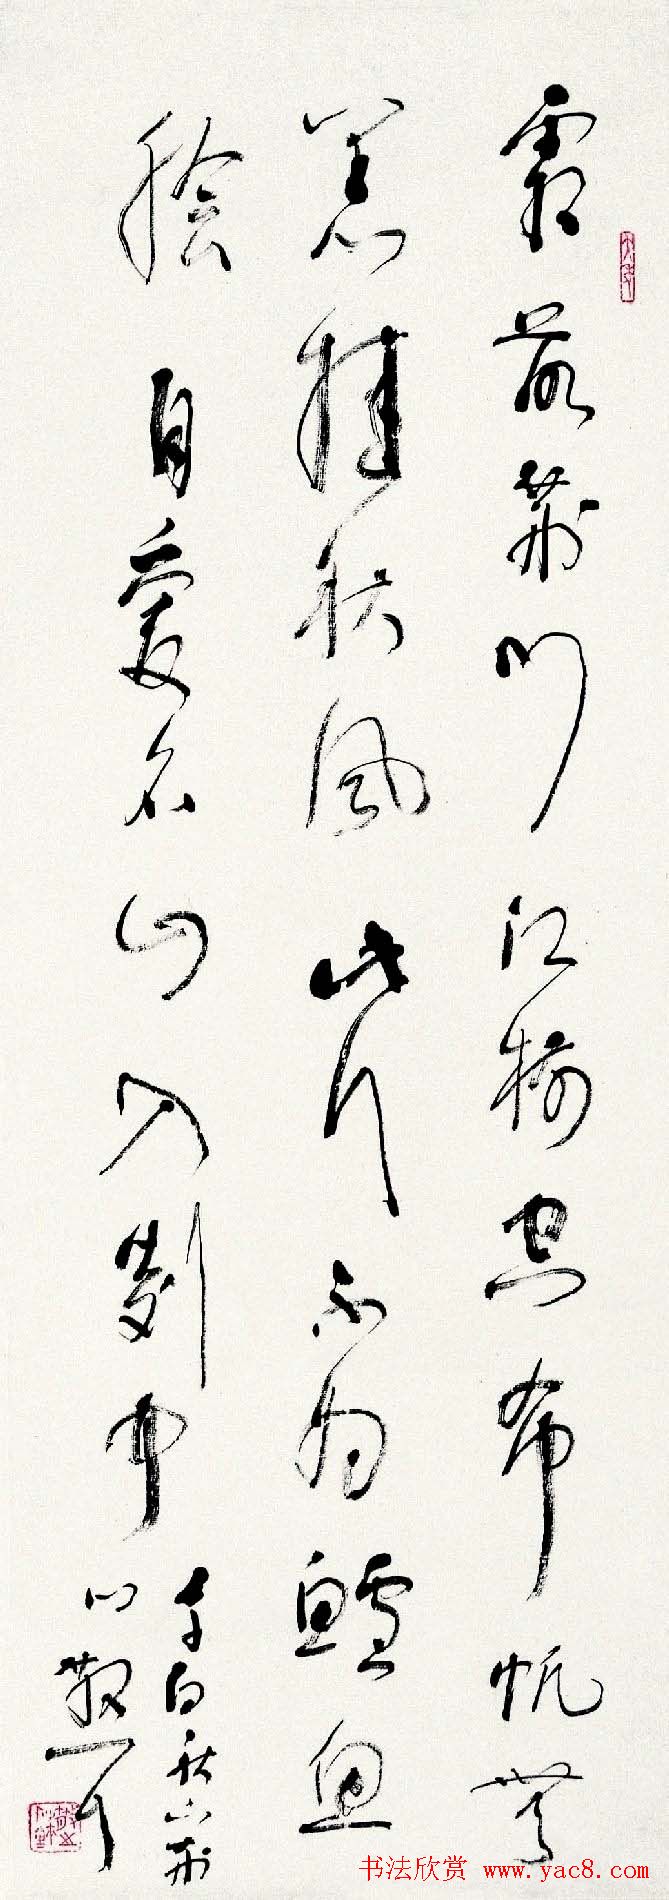 霜落荆门江树空布帆無
恙挂秋風此行不为鱸魚
脍自愛名山入剡中
李白秋下荆
门散耳
书法欣赏 www.yac8.com